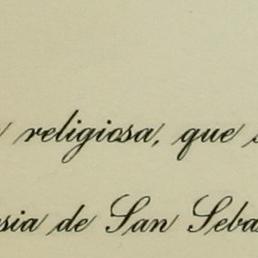 religiosa, que
sia de San Seba